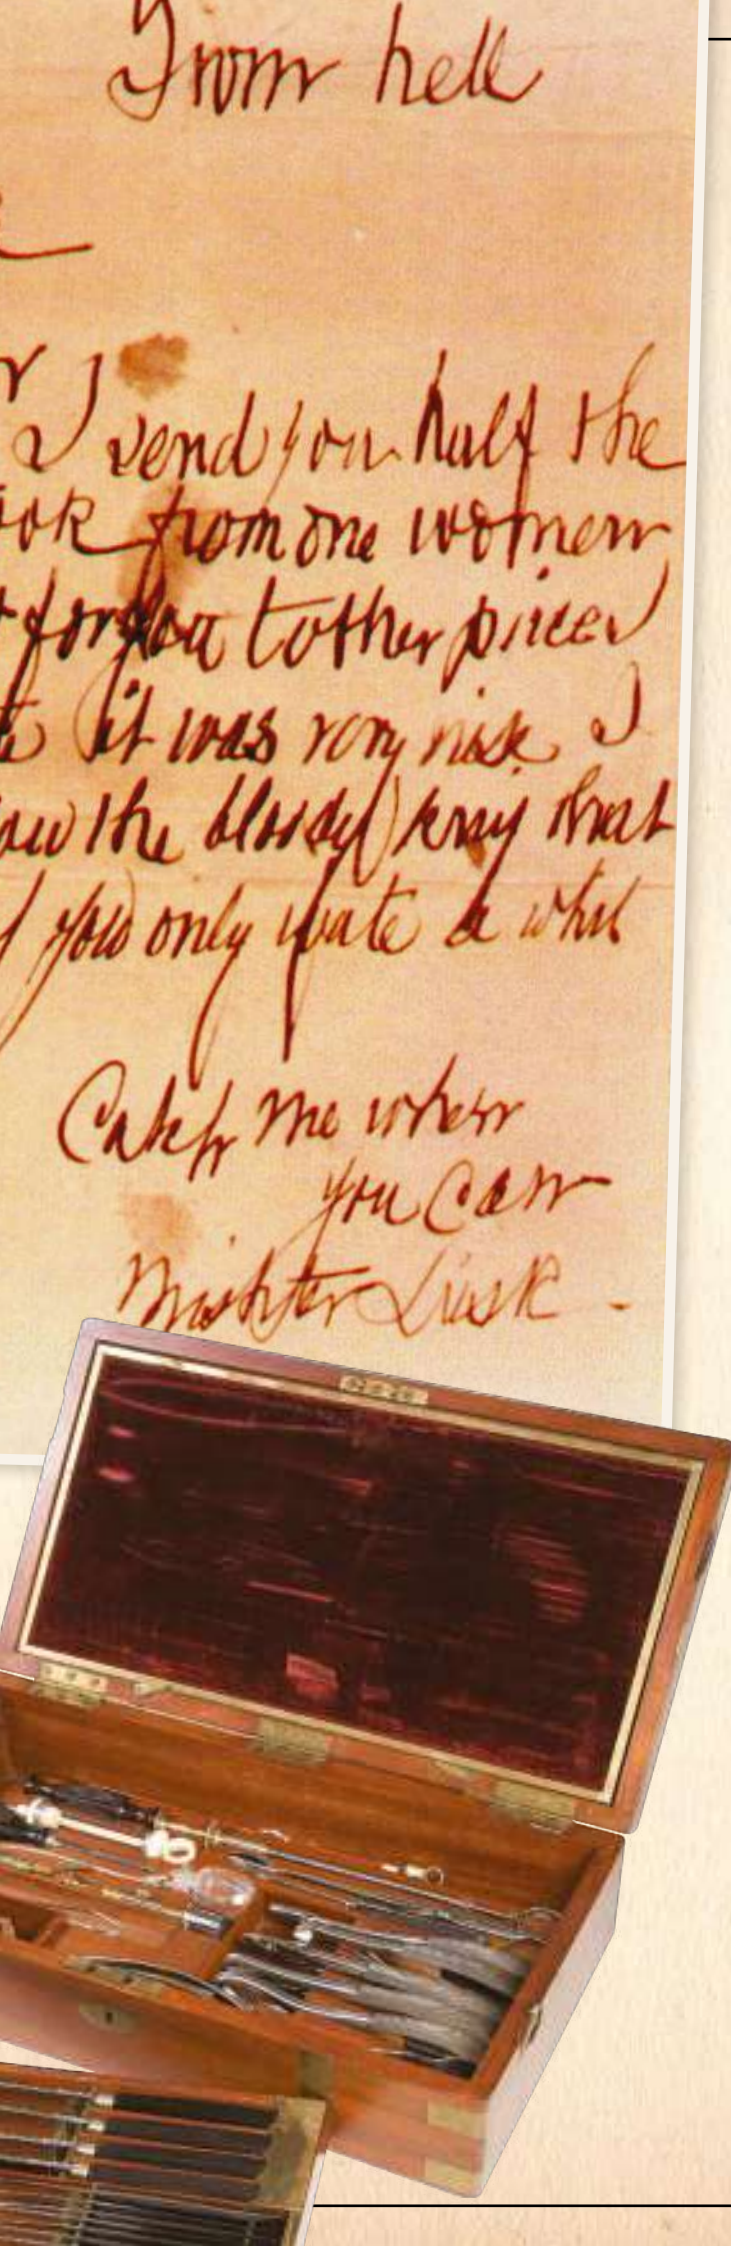 From hell
I send you half the
ook from one women
for you tother piece
it was very nise I
ow the bloody knif that
you only wate a whil
Catch me when
you can
Mishter Lusk